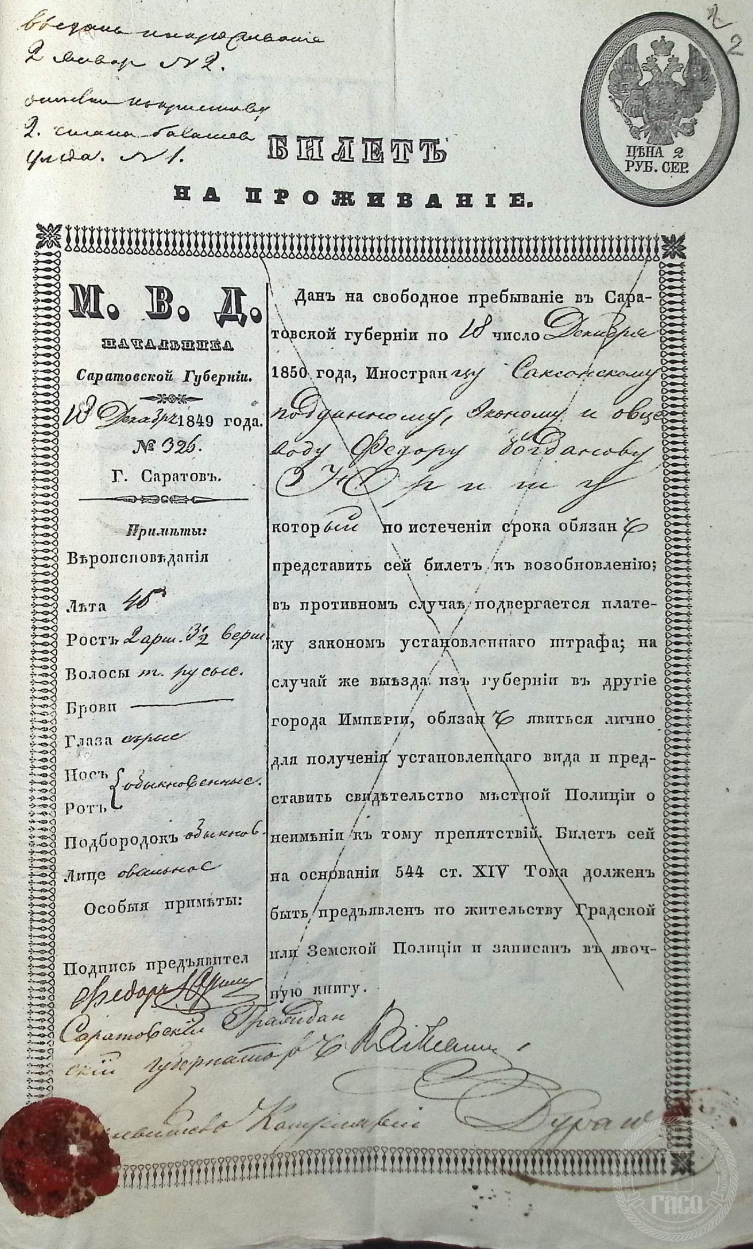 2
2
2 Январ №2.
№1.
ЦѢНА 2
РУБ. СЕР.
БИЛЕТЪ
НА ПРОЖИВАНІЕ.
М. В. Д.
НАЧАЛЬНИКА
Саратовской Губерніи.
18 Декабр 1849 года.
№ 325.
Г. Саратовъ.
Примѣты:
Вѣроисповѣданія
Лѣта 46
Ростъ 2 арш. 3½ верш
Волосы т. русые.
Брови
Глаза сѣрые
Носъ
Ротъ обыкновенные.
Подбородокъ обыкнов.
Лице овальное
Особыя примѣты:
Подпись предъявител
Федоръ Юришъ
Данъ на свободное пребываніе въ Сара-
товской губерніи по 18 число Декабря
1850 года, Иностранцу Саксонскому
подданному, Эконому и овце
воду Федору Богданову
Юришу
который по истеченіи срока обязанъ
представить сей билетъ къ возобновленію;
въ противномъ случаѣ подвергается плате-
жу закономъ установленнаго штрафа; на
случай же выѣзда изъ губерніи въ другіе
города Имперіи, обязанъ явиться лично
для полученія установленнаго вида и пред-
ставить свидѣтельство мѣстной Полиціи о
неимѣніи къ тому препятствій. Билетъ сей
на основаніи 544 ст. XIV Тома долженъ
быть предъявленъ по жительству Градской
или Земской Полиціи и записанъ въ явоч-
ную книгу.
Саратовскій Граждан
скій Губернаторъ
ГАСО